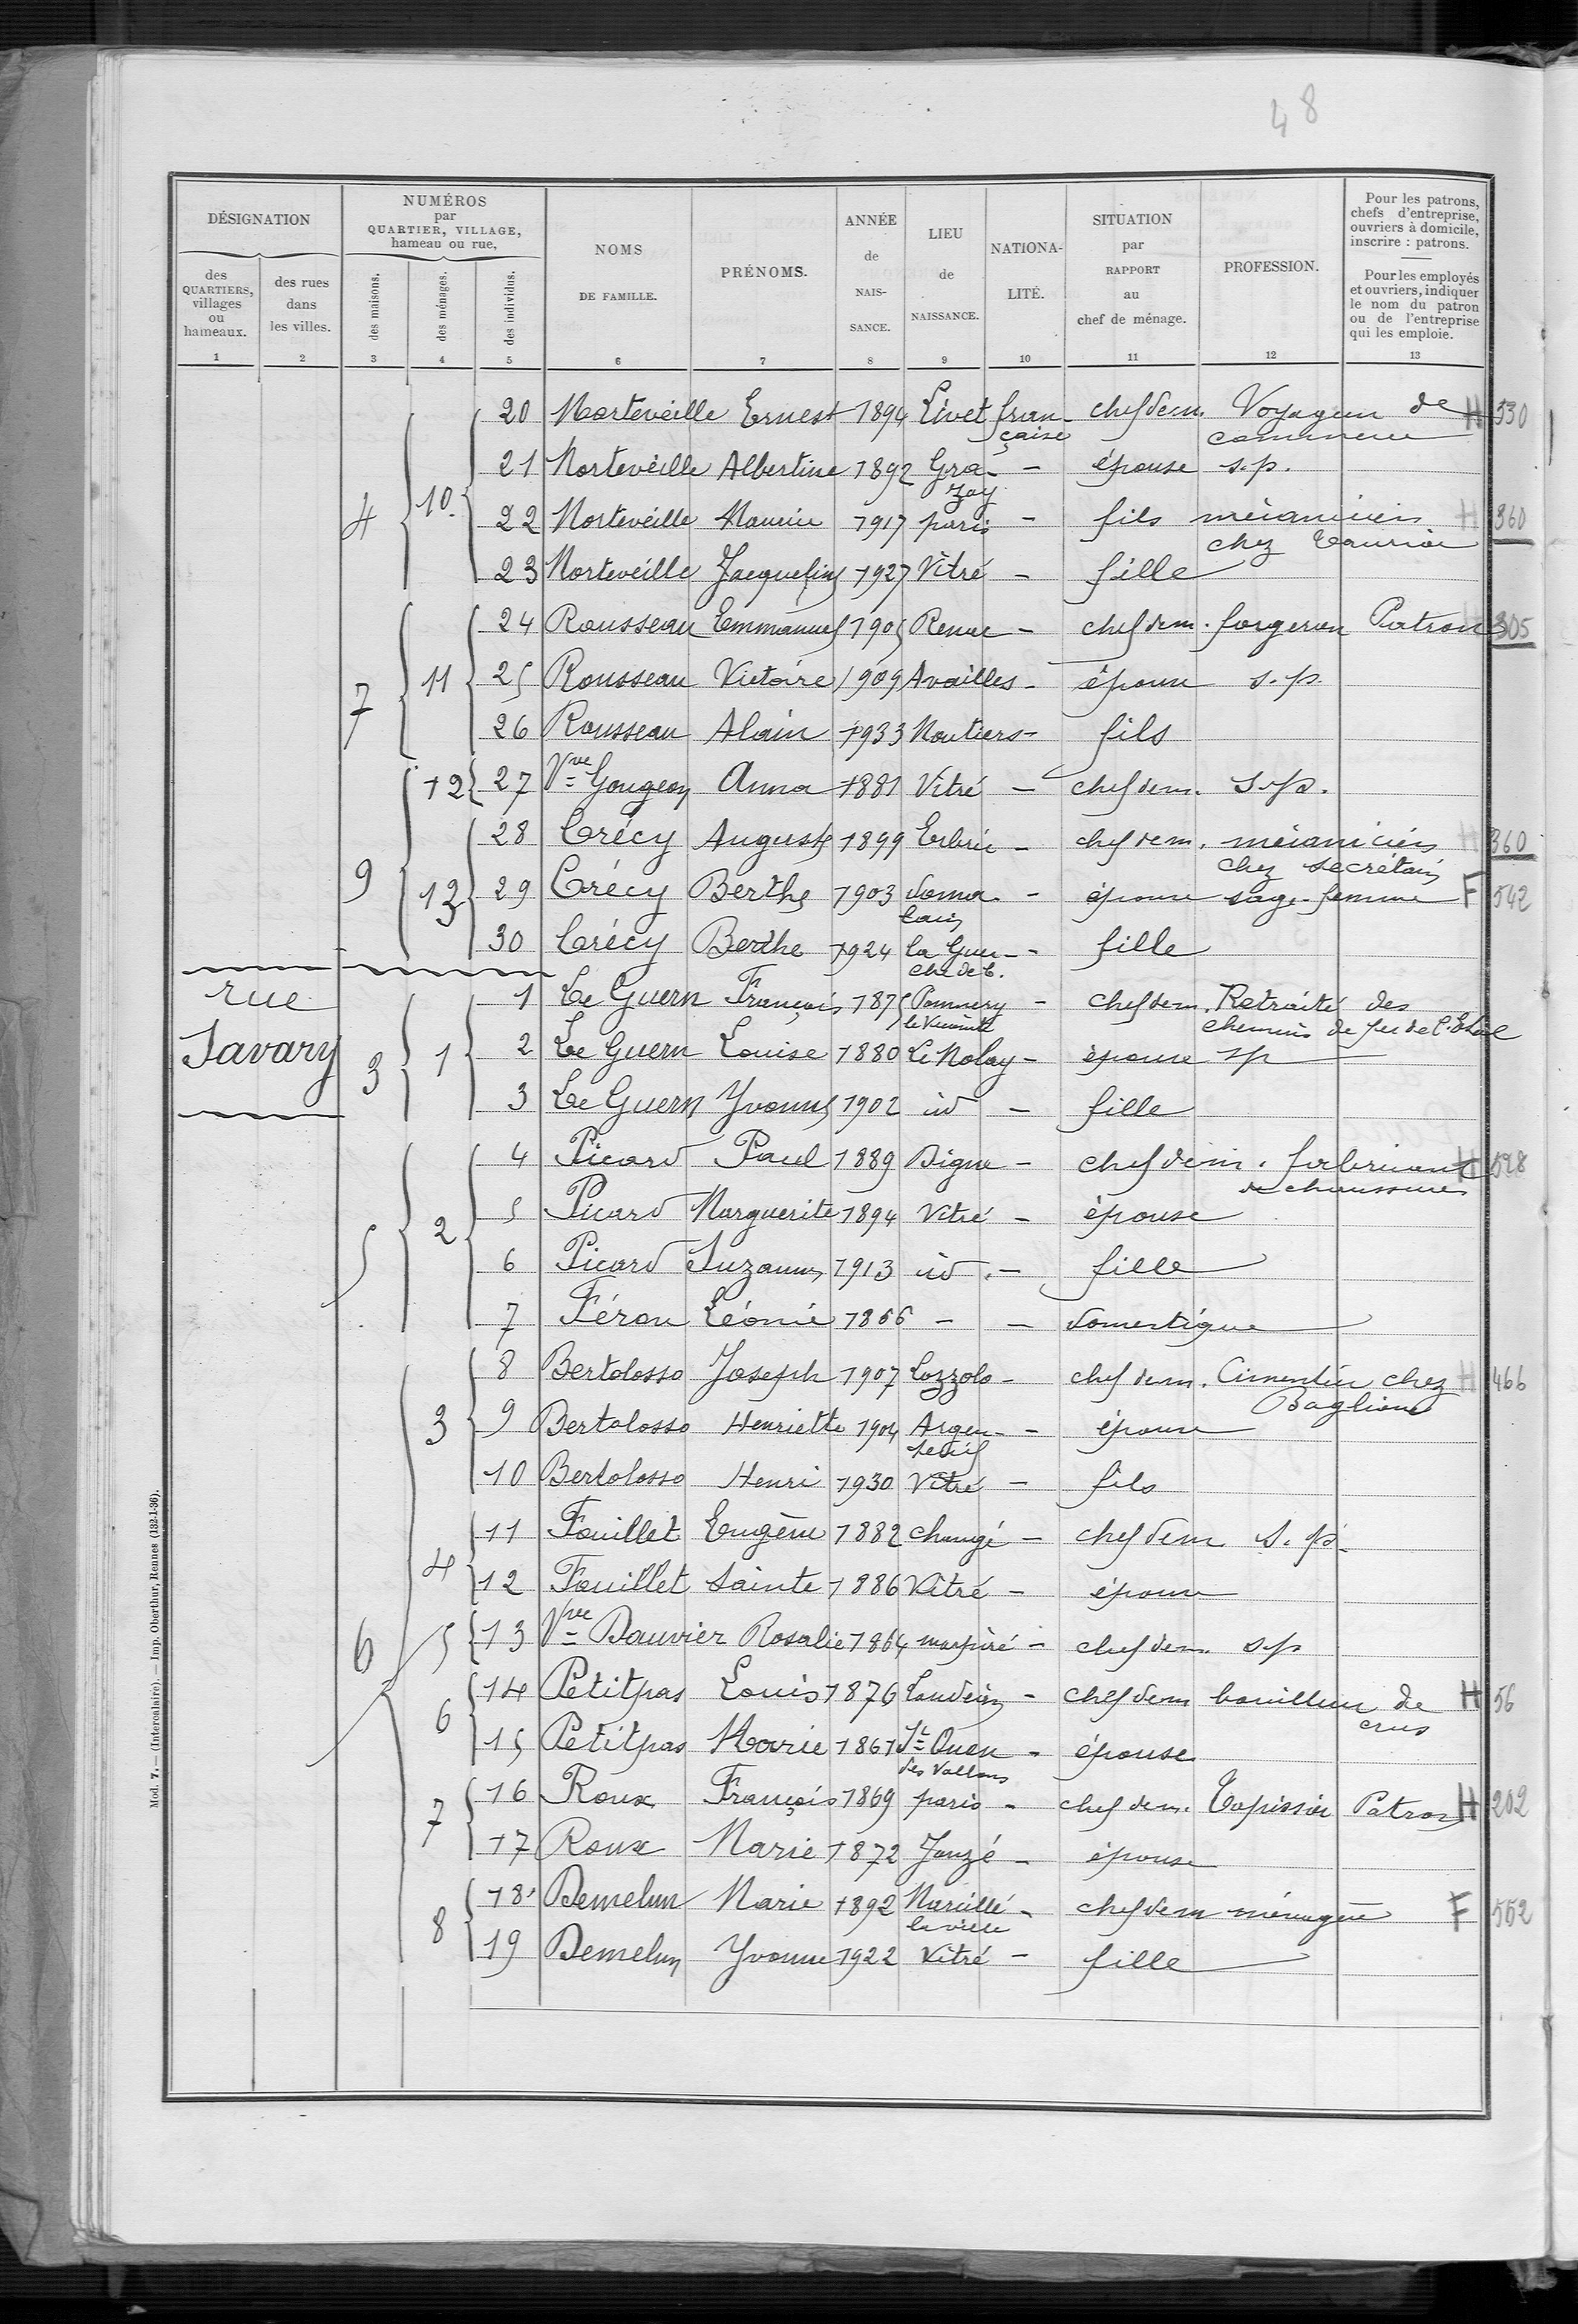 48
DÉSIGNATION
des QUARTIERS, villages ou hameaux.
des rues dans les villes.
NUMÉROS par QUARTIER, VILLAGE, hameau ou rue,
des maisons.
des ménages.
des individus.
NOMS DE FAMILLE.
PRÉNOMS.
ANNÉE de NAISSANCE.
LIEU de NAISSANCE.
NATIONALITÉ.
SITUATION par RAPPORT au chef de ménage.
PROFESSION.
Pour les patrons, chefs d'entreprise, ouvriers à domicile, inscrire : patrons.
Pour les employés et ouvriers, indiquer le nom du patron ou de l'entreprise qui les emploie.
1 2 3 4 5 6 7 8 9 10 11 12 13
20 Morteveille Ernest 1894 Livet française chef de m. Voyageur de commerce H 530
21 Morteveille Albertine 1892 Grazay - épouse s.p.
4 10 22 Morteveille Maurice 1917 paris - fils mécanicien chez H 360
23 Morteveille Jacqueline 1927 Vitré - fille
24 Rousseau Emmanuel 1905 - chef de m. forgeron Patron 305
7 11 25 Rousseau Victoire 1909 Availles - épouse s.p.
26 Rousseau Alain 1933 Moutiers - fils
12 27 Vve Gougeon Anna 1881 Vitré - chef de m. s.p.
28 Crécy Auguste 1899 Erbrée - chef de m. mécanicien chez secrétain H 360
9 13 29 Crécy Berthe 1903 Domalain - épouse sage-femme F 542
30 Crécy Berthe 1924 La Guerche de B. - fille
rue Savary
1 Le Guern François 1875 - chef de m. Retraité des chemins de fer de l'Etat
3 1 2 Le Guern Louise 1880 Le Molay - épouse sp
3 Le Guern Yvonne 1902 id - fille
4 Picard Paul 1889 Digne - chef de m. fabricant de chaussures H 528
5 2 5 Picard Marguerite 1894 Vitré - épouse
6 Picard Suzanne 1913 id. - fille
7 Féron Léonie 1866 - - domestique
8 Bertolosso Joseph 1907 Lozzolo - chef de m. Cimentier chez Baglione H 466
3 9 Bertolosso Henriette 1904 Argenteuil - épouse
10 Bertolosso Henri 1930 Vitré - fils
11 Fouillet Eugène 1882 Changé - chef de m s.p.
4 12 Fouillet Sainte 1886 Vitré - épouse
6 5 13 Vve Dauvier Rosalie 1864 marpiré - chef de m. s.p
14 Petitpas Louis 1876 Landéan - chef de m bouilleur de crus H 56
6 15 Petitpas Marie 1867 St Ouen des Vallons - épouse
16 Roux François 1869 paris - chef de m. Tapissier Patron H 202
7 17 Roux Marie 1872 Janzé - épouse
18 Demelun Marie 1892 Marcillé la ville - chef de m ménagère F 552
8 19 Demelun Yvonne 1922 Vitré - fille
Mod. 7. — (Intercalaire). — Imp. Oberthur, Rennes (132-1-36).